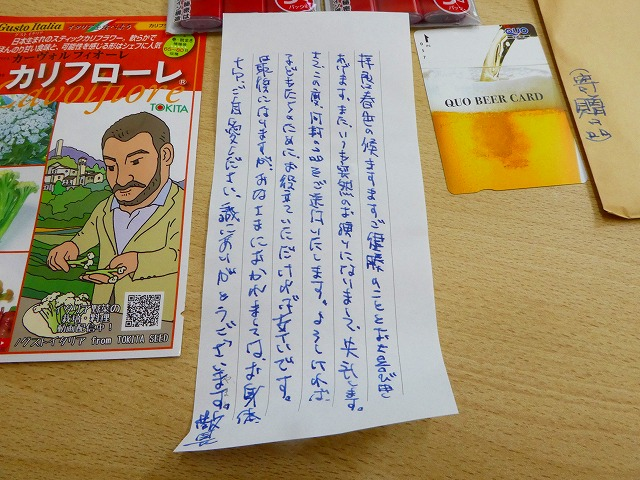 Gusto Italia
日本生まれのスティックカリフラワー。軟らかで
ほんのり甘い食味と、可能性を感じる形はシェフに人気
カーヴォルフィオーレ
カリフローレ®
TOKITA
イタリア野菜の
栽培・料理
動画配信中！
グストイタリア from TOKITA SEED
拝啓 春色の候 ますますご健勝のこととお喜び申し
あげます。また、いつも突然のお願りになりまして、失礼します。
さて、この度、同封の品をご送付いたします。よろしければ
などもたしのために、お役立ていただければ幸いです。
最後になりますが、みなさまにおかれましては、お身体
ご自愛ください。誠にありがとうございます。敬具
QUO
QUO BEER CARD